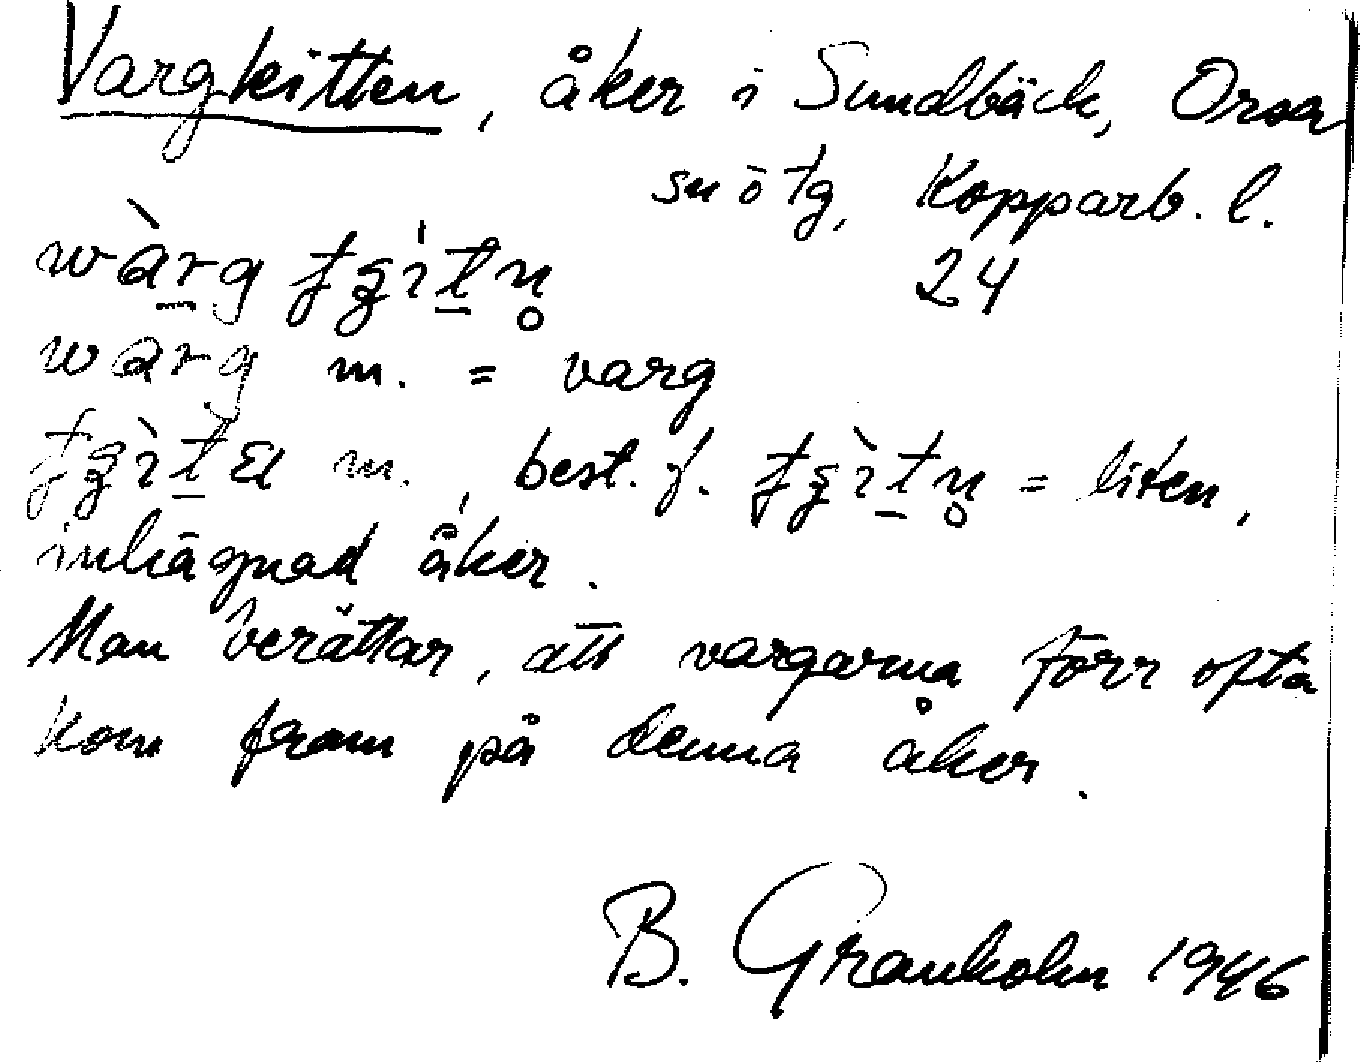 Vargkitten, åker i Sundbäck, Orsa
sn ö tg, Kopparb. l.
24
wàrg
warg m. = varg
m., best. f. = liten,
inhägnad åker.
Man berättar, att vargarna förr ofta
kom fram på denna åker.
B. Granholm 1946